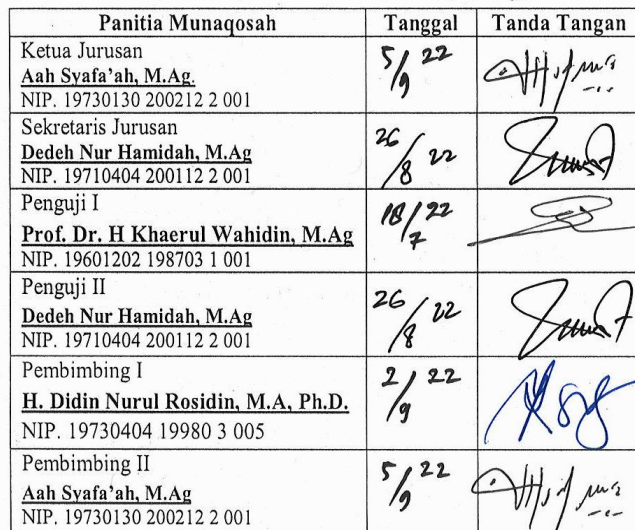 Panitia Munaqosah Tanggal Tanda Tangan
Ketua Jurusan
Aah Syafa'ah, M.Ag.
NIP. 19730130 200212 2 001
5/9 22
Sekretaris Jurusan
Dedeh Nur Hamidah, M.Ag
NIP. 19710404 200112 2 001
26/8 22
Penguji I
Prof. Dr. H Khaerul Wahidin, M.Ag
NIP. 19601202 198703 1 001
18/7 22
Penguji II
Dedeh Nur Hamidah, M.Ag
NIP. 19710404 200112 2 001
26/8 22
Pembimbing I
H. Didin Nurul Rosidin, M.A, Ph.D.
NIP. 19730404 19980 3 005
2/9 22
Pembimbing II
Aah Syafa'ah, M.Ag
NIP. 19730130 200212 2 001
5/9 22